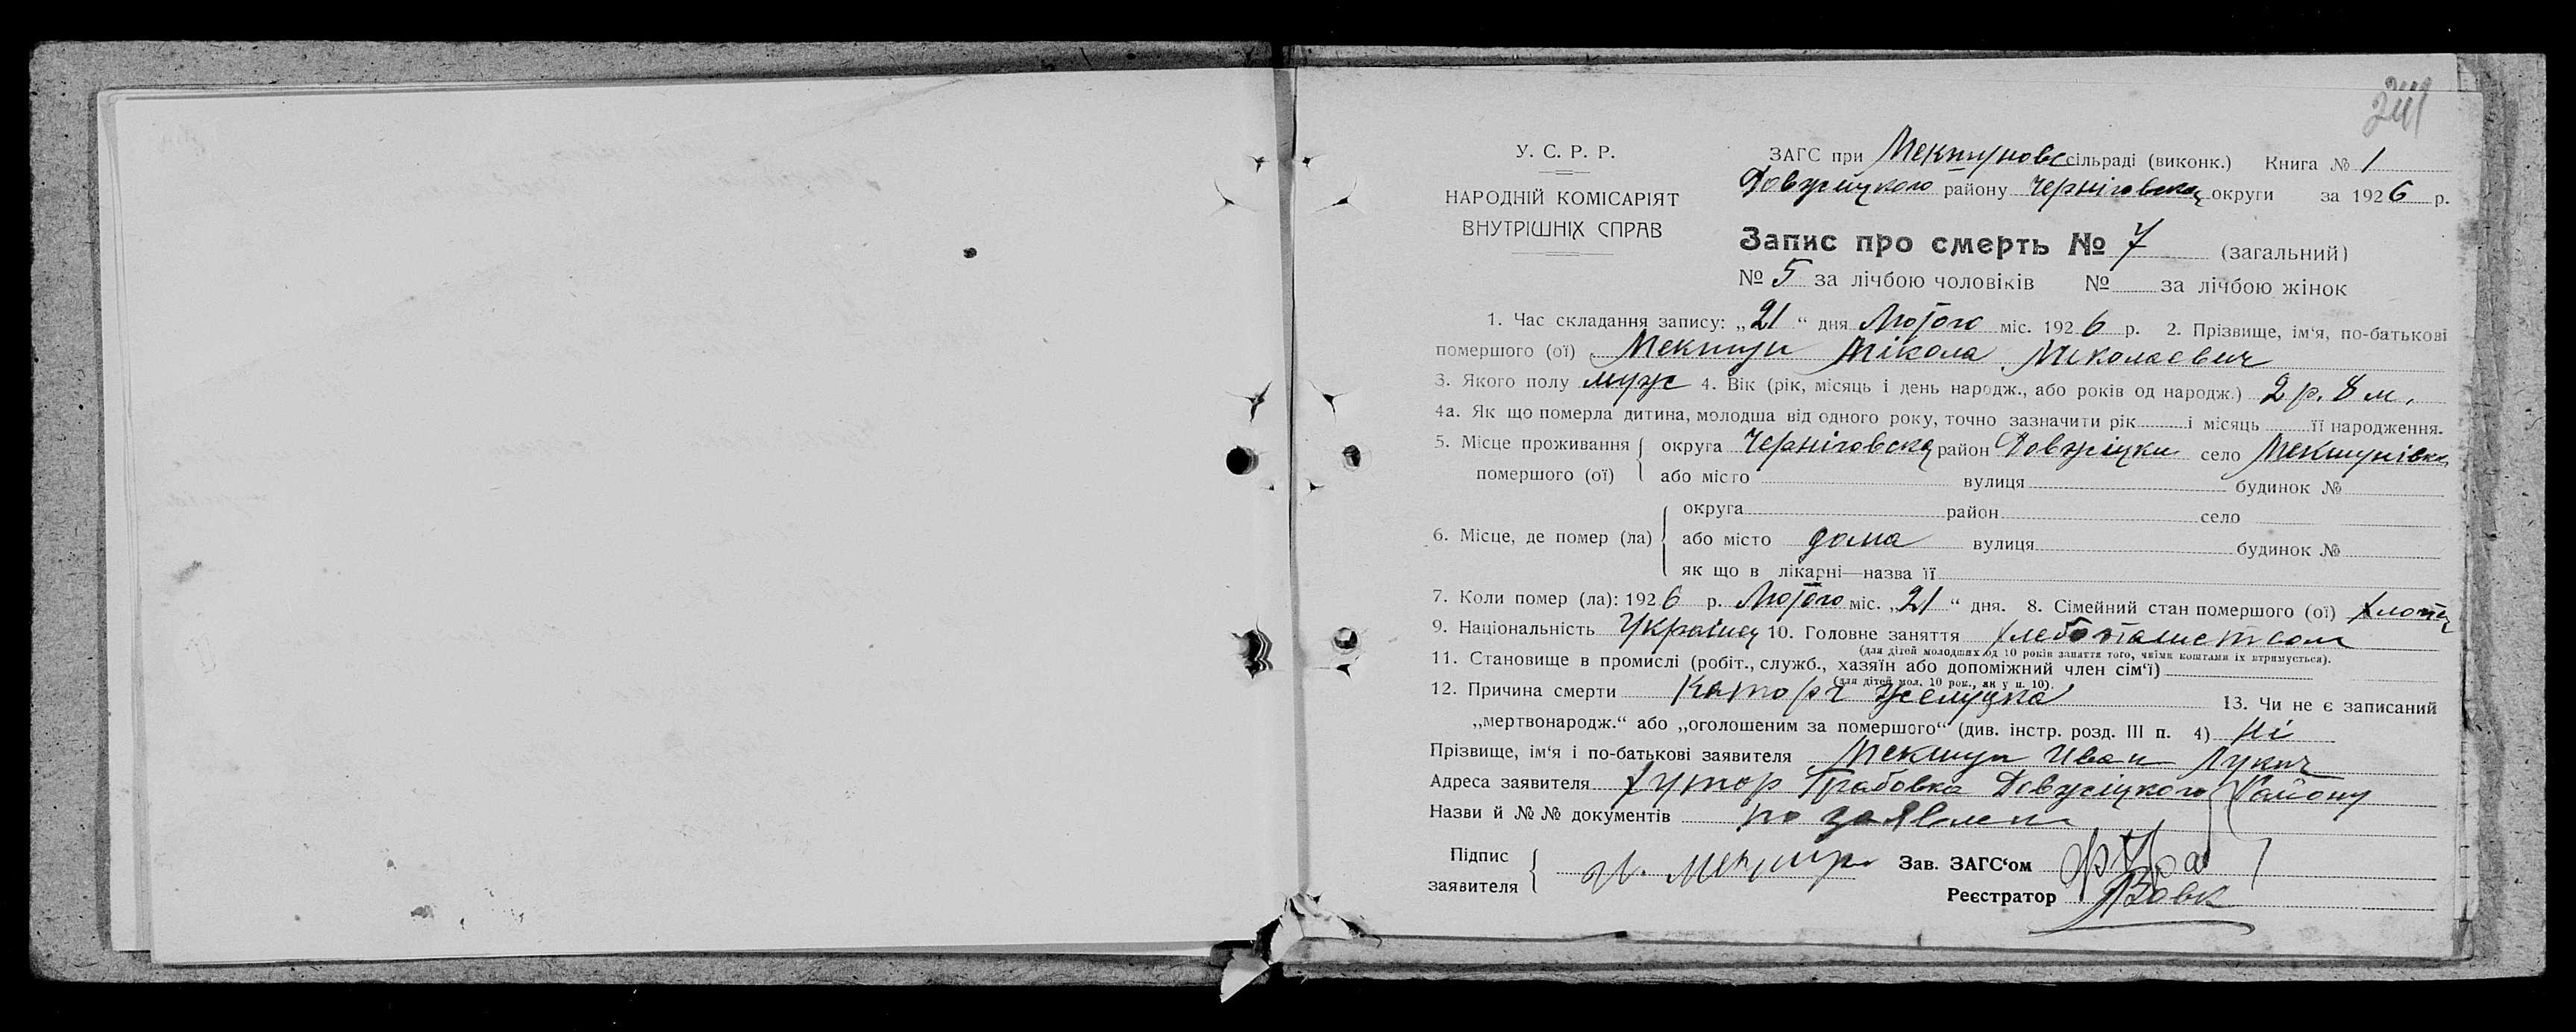 241
У. С. Р. Р.
НАРОДНІЙ КОМІСАРІЯТ
ВНУТРІШНІХ СПРАВ
ЗАГС при Мекшуновс сільраді (виконк.) Книга № 1
Довжицкого району Черніговской округи за 1926 р.
Запис про смерть № 7 (загальний)
№ 5 за лічбою чоловіків № за лічбою жінок
1. Час складання запису: „21“ дня Лютого міс. 1926 р. 2. Прізвище, ім‘я, по-батькові
помершого (ої) Мекшун Мікола Миколаєвич
3. Якого полу муж 4. Вік (рік, місяць і день народж., або років од народж.) 2 р. 8 м.
4а. Як що померла дитина, молодша від одного року, точно зазначити рік і місяць її народження.
5. Місце проживання помершого (ої) округа Черніговска район Довжицки село Мекшунівка
або місто вулиця будинок №
6. Місце, де помер (ла) округа район село
або місто дома вулиця будинок №
як що в лікарні—назва її
7. Коли помер (ла): 1926 р. Лютого міс. „21“ дня. 8. Сімейний стан помершого (ої) хлопец
9. Національність Україней 10. Головне заняття
(для дітей молодших од 10 років заняття того, чиїми коштами їх втримується).
11. Становище в промислі (робіт., служб., хазяїн або допоміжний член сім‘ї)
(для дітей мол. 10 рок., як у п. 10).
12. Причина смерти Катор желудка 13. Чи не є записаний
„мертвонародж.“ або „оголошеним за помершого“ (див. інстр. розд. III п. 4) Ні
Прізвище, ім‘я і по-батькові заявителя Мекшун Иван Лукич
Адреса заявителя хутор Грабовка Довжицкого Району
Назви й №№ документів по заявлен
Підпис заявителя И. Мекшун Зав. ЗАГС‘ом
Реєстратор Вовк